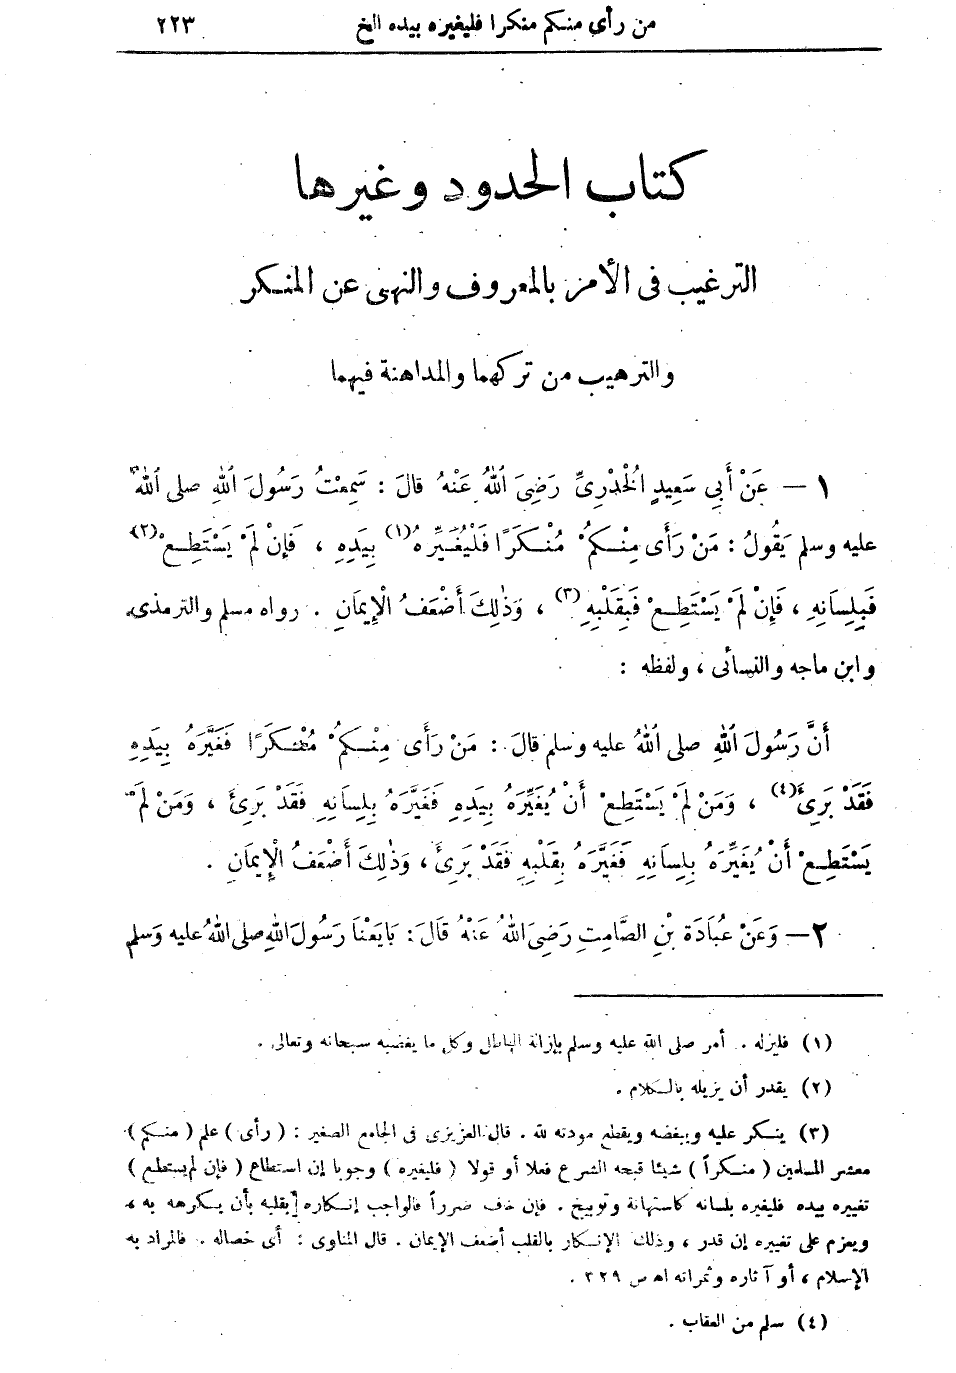 من رأى منكم منكرا فليغيره بيده الخ ٢٢٣
كتاب الحدود وغيرها
الترغيب فى الأمر بالمعروف والنهى عن المنكر
والترهيب من تركهما والمداهنة فيهما
١ — عَنْ أَبِي سَعِيدٍ الْخُدْرِىِّ رَضِىَ اللّٰهُ عَنْهُ قالَ : سَمِعْتُ رَسُولَ اللّٰهِ صلى اللّٰهُ
عليه وسلم يَقُولُ : مَنْ رَأَى مِنْكُمْ مُنْكَرًا فَلْيُغَيِّرْهُ(١) بِيَدِهِ ، فَإِنْ لَمْ يَسْتَطِعْ(٢)
فَبِلِسَانِهِ ، فَإِنْ لَمْ يَسْتَطِعْ فَبِقَلْبِهِ(٣) ، وَذٰلِكَ أَضْعَفُ الْإِيمَانِ . رواه مسلم والترمذى
وابن ماجه والنسائى ، ولفظه :
أَنَّ رَسُولَ اللّٰهِ صلى اللّٰهُ عليه وسلم قالَ : مَنْ رَأَى مِنْكُمْ مُنْكَرًا فَغَيَّرَهُ بِيَدِهِ
فَقَدْ بَرِئَ(٤) ، وَمَنْ لَمْ يَسْتَطِعْ أَنْ يُغَيِّرَهُ بِيَدِهِ فَغَيَّرَهُ بِلِسَانِهِ فَقَدْ بَرِئَ ، وَمَنْ لَمْ
يَسْتَطِعْ أَنْ يُغَيِّرَهُ بِلِسَانِهِ فَغَيَّرَهُ بِقَلْبِهِ فَقَدْ بَرِئَ ، وَذٰلِكَ أَضْعَفُ الْإِيمَانِ .
٢ — وَعَنْ عُبَادَةَ بْنِ الصَّامِتِ رَضِىَ اللّٰهُ عَنْهُ قَالَ : بَايَعْنَا رَسُولَ اللّٰهِ صلى اللّٰهُ عليه وَسلم
(١) فليزله . أمر صلى الله عليه وسلم بإزالة الباطل وكل ما يغضبه سبحانه وتعالى .
(٢) يقدر أن يزيله بالكلام .
(٣) ينكر عليه ويبغضه ويقطع مودته لله . قال العزيزى فى الجامع الصغير : ( رأى ) علم ( منكم )
معشر المسلمين ( منكراً ) شيئا قبحه الشرع فعلا أو قولا ( فليغيره ) وجوبا إن استطاع ( فإن لم يستطع )
تغييره بيده فليغيره بلسانه كاستهانة وتوبيخ . فإن خاف ضرراً فالواجب إنكاره بقلبه بأن يكرهه به ،
ويعزم على تغييره إن قدر ، وذلك الإنكار بالقلب أضعف الإيمان . قال المناوى : أى خصاله . فالمراد به
الإسلام ، أو آثاره وثمراته اه ص ٣٢٩ .
(٤) سلم من العقاب .